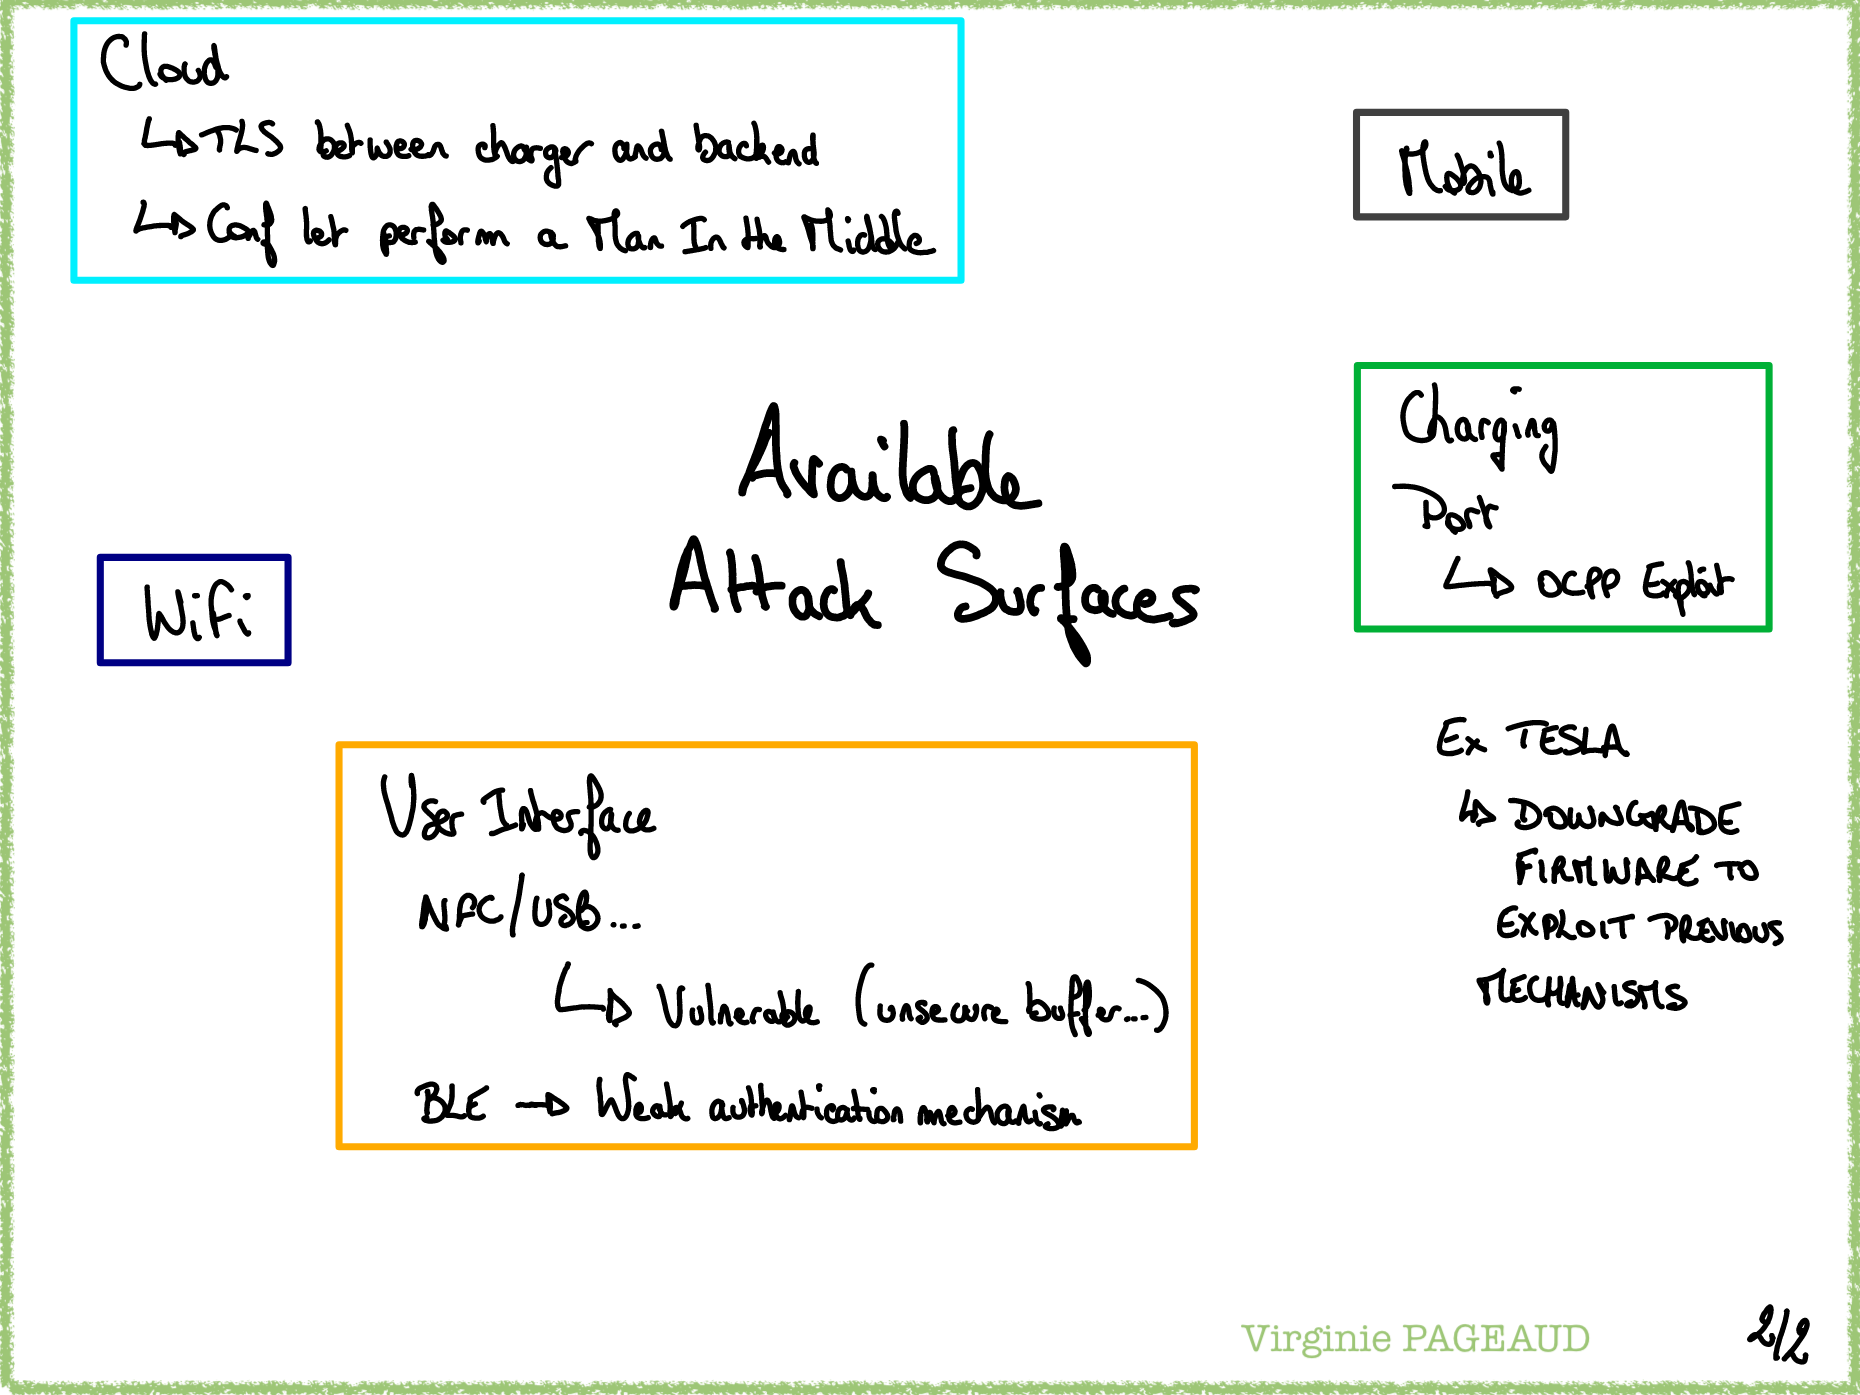 Cloud
TLS between charger and backend
Conf let perform a Man In the Middle
Mobile
Available
Attack Surfaces
Charging
Port
OCPP Exploit
WiFi
Ex TESLA
DOWNGRADE
FIRMWARE TO
EXPLOIT PREVIOUS
MECHANISMS
User Interface
NFC/USB...
Vulnerable (unsecure buffer...)
BLE → Weak authentication mechanism
Virginie PAGEAUD
2/2